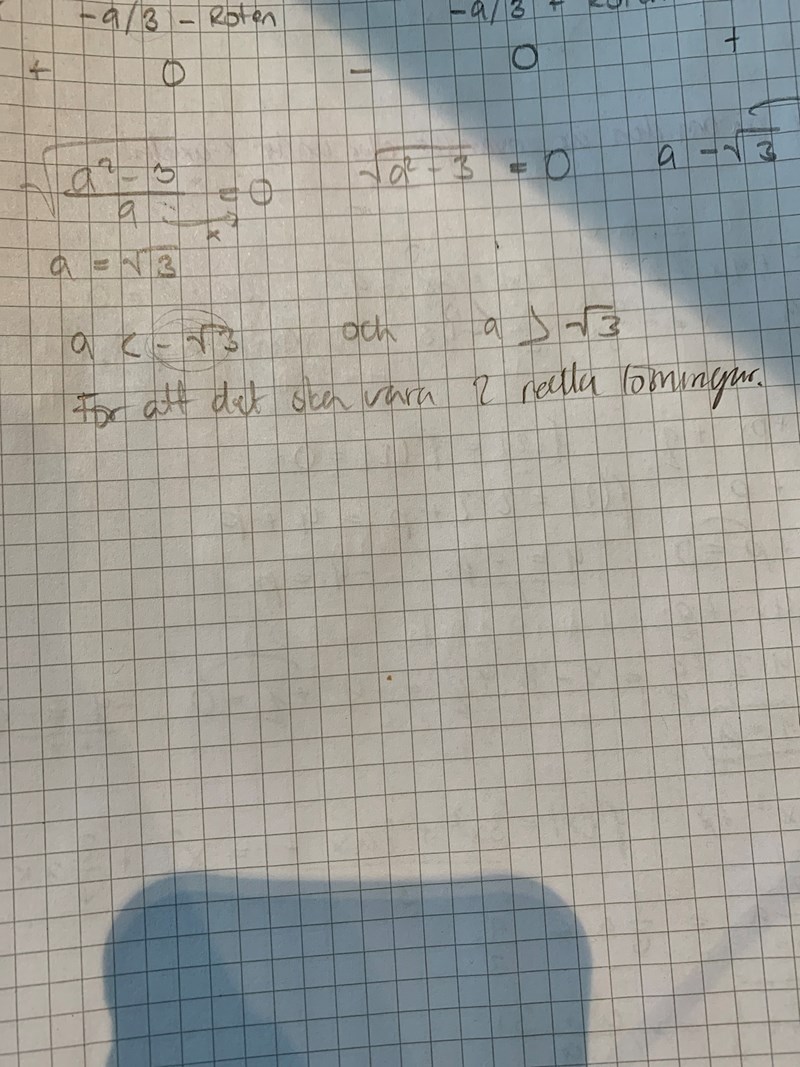 -a/3 - Roten -a/3 +
+ 0 - 0 +
√(a² - 3)/a = 0 √a² - 3 = 0 a = √3
a = √3
a < -√3 och a > √3
För att det ska vara 2 reella lösningar.